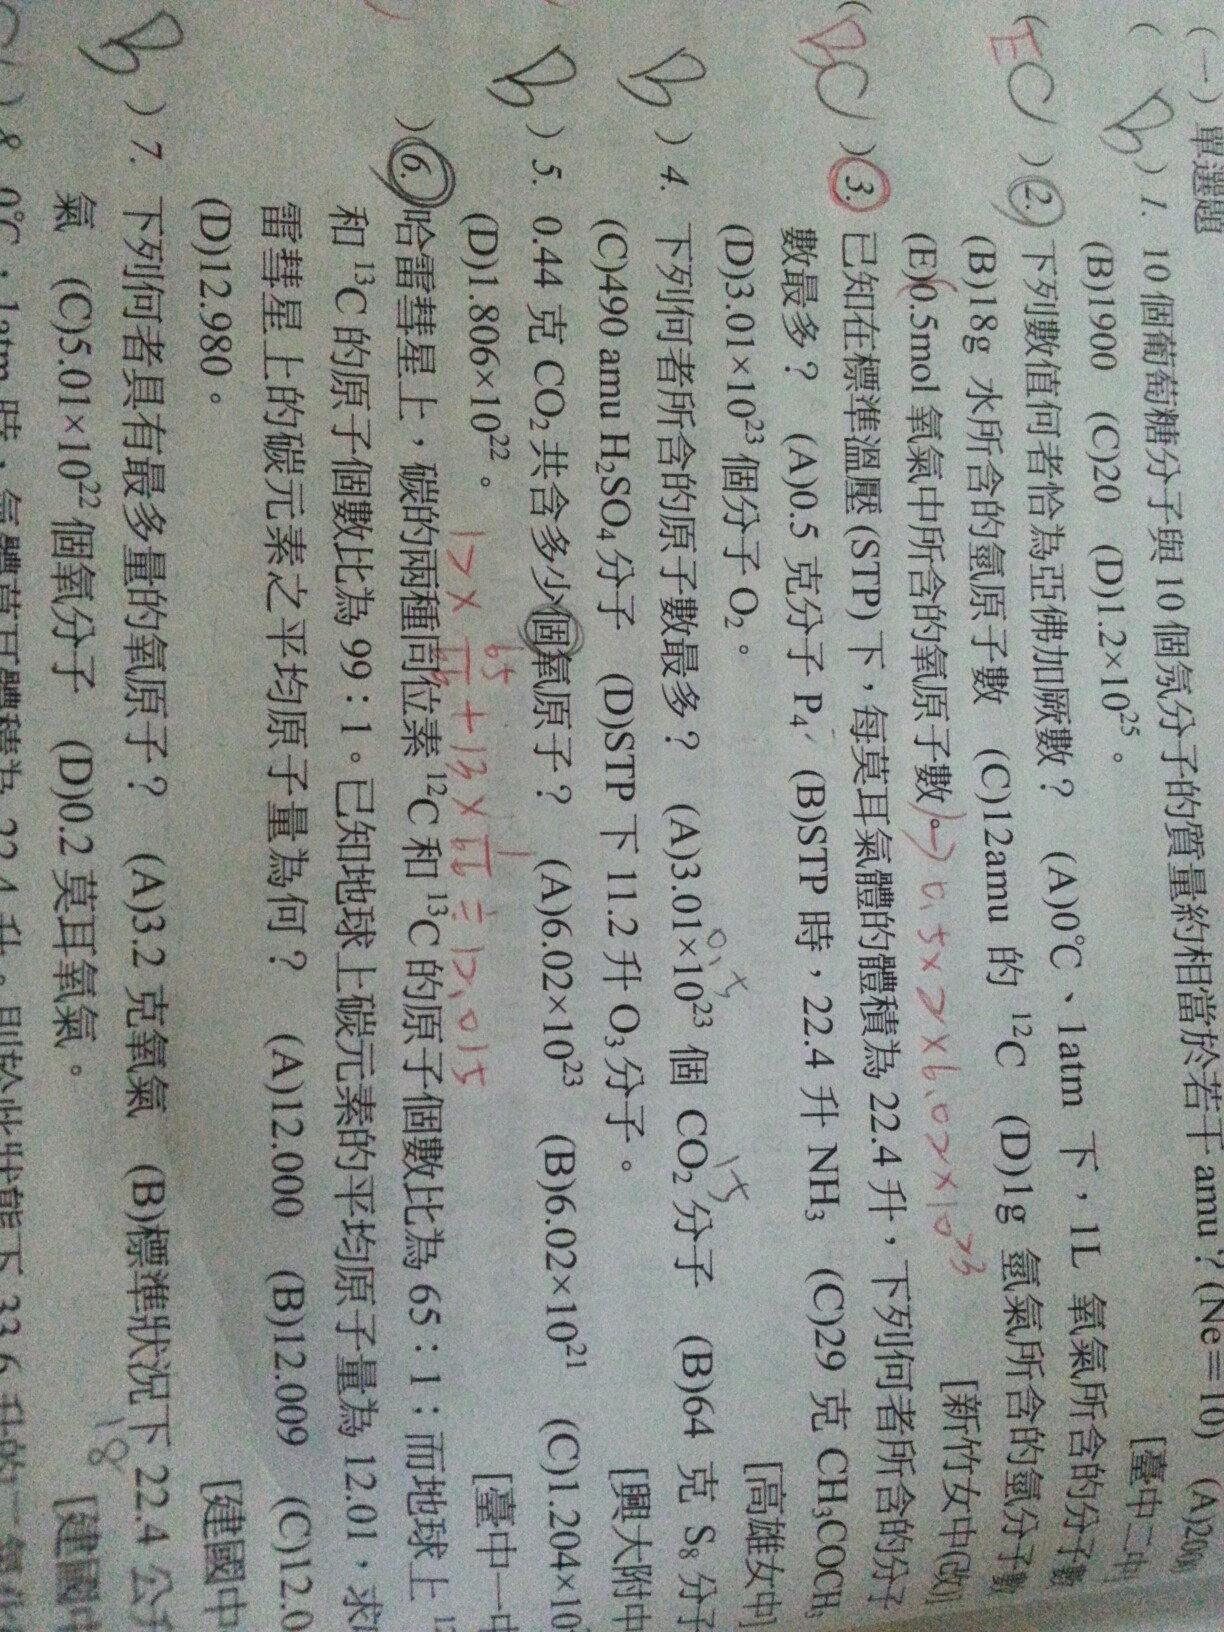 (一) 單選題
( B ) 1. 10 個葡萄糖分子與 10 個氖分子的質量約相當於若干 amu？(Ne＝10) (A)2000
(B)1900 (C)20 (D)1.2×10²⁵。 [臺中二中]
( EC ) 2. 下列數值何者恰為亞佛加厥數？ (A)0℃、1atm 下，1L 氧氣所含的分子數
(B)18g 水所含的氫原子數 (C)12amu 的 ¹²C (D)1g 氫氣所含的氫分子數
(E)0.5mol 氧氣中所含的氧原子數。 [新竹女中(改)]
0.5×2×6.02×10²³
( BC ) 3. 已知在標準溫壓 (STP) 下，每莫耳氣體的體積為 22.4 升，下列何者所含的分子
數最多？ (A)0.5 克分子 P₄ (B)STP 時，22.4 升 NH₃ (C)29 克 CH₃COCH₃
(D)3.01×10²³ 個分子 O₂。 [高雄女中]
B ) 4. 下列何者所含的原子數最多？ (A)3.01×10²³ 個 CO₂ 分子 (B)64 克 S₈ 分子
0.5 1.5
(C)490 amu H₂SO₄ 分子 (D)STP 下 11.2 升 O₃ 分子。 [興大附中
B ) 5. 0.44 克 CO₂ 共含多少個氧原子？ (A)6.02×10²³ (B)6.02×10²¹ (C)1.204×10²
(D)1.806×10²²。 [臺中一中
) 6. 哈雷彗星上，碳的兩種同位素 ¹²C 和 ¹³C 的原子個數比為 65：1；而地球上 ¹²
和 ¹³C 的原子個數比為 99：1。已知地球上碳元素的平均原子量為 12.01，求
雷彗星上的碳元素之平均原子量為何？ (A)12.000 (B)12.009 (C)12.0
(D)12.980。 [建國中
B ) 7. 下列何者具有最多量的氧原子？ (A)3.2 克氧氣 (B)標準狀況下 22.4 公升
氣 (C)5.01×10²² 個氧分子 (D)0.2 莫耳氧氣。 [建國中
18
) 8. 0℃，1atm 時，氣體莫耳體積為 22.4 升。則於此狀態下 33.6 升的